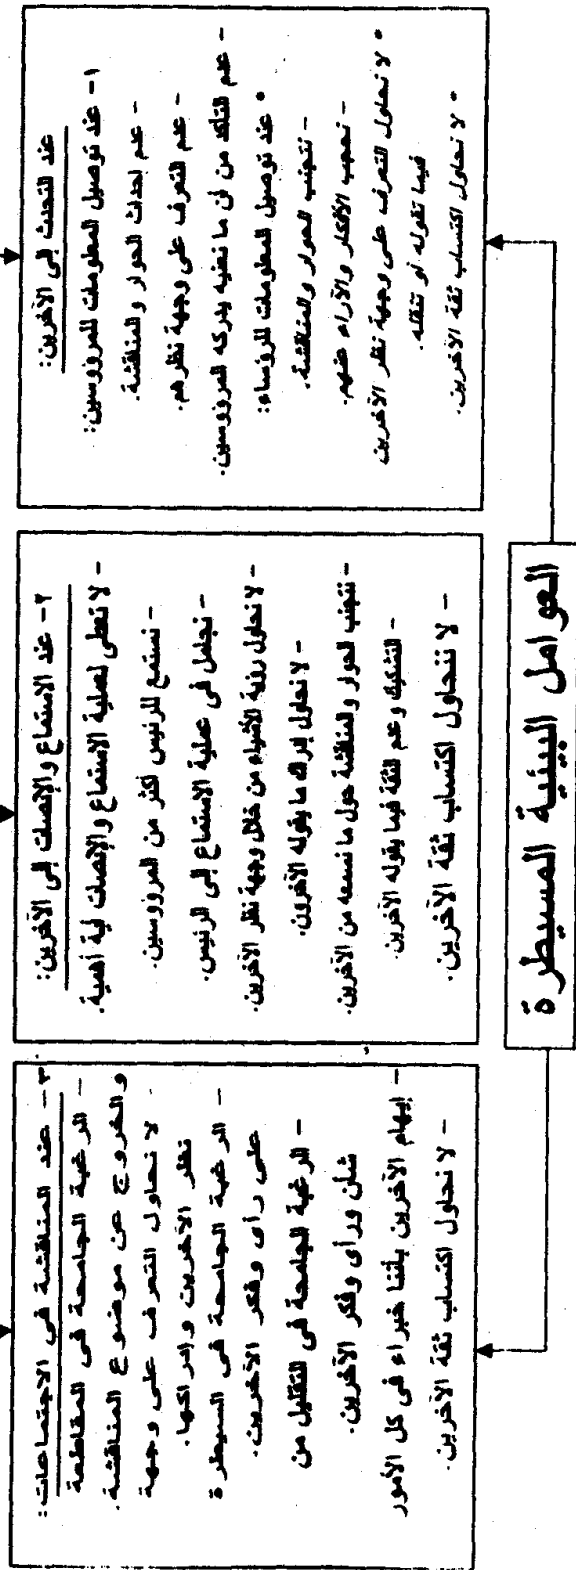 عند التحدث إلى الآخرين:
١- عند توصيل المعلومات للمرؤوسين:
- عدم احداث الحوار والمناقشة.
- عدم التعرف على وجهة نظرهم.
- عدم التأكد من أن ما نعنيه يدركه المرؤوسين.
• عند توصيل المعلومات للرؤساء:
- نتجنب الحوار والمناقشة.
- نحجب الأفكار والآراء عنهم.
• لا نحاول التعرف على وجهة نظر الآخرين
فيما نقوله أو ننقله.
• لا نحاول اكتساب ثقة الآخرين.
٢- عند الاستماع والإنصات إلى الآخرين:
- لا نعطى لعملية الاستماع والإنصات أية أهمية.
- نستمع للرئيس أكثر من المرؤوسين.
- نجامل فى عملية الاستماع إلى الرئيس.
- لا نحاول رؤية الأشياء من خلال وجهة نظر الآخرين.
- لا نحاول إدراك ما يقوله الآخرون.
- نتجنب الحوار والمناقشة حول ما نسمعه من الآخرين.
- التشكيك وعدم الثقة فيما يقوله الآخرين.
- لا نتحاول اكتساب ثقة الآخرين.
٣- عند المناقشة فى الاجتماعات:
- الرغبة الجامحة فى المقاطعة
والخروج عن موضوع المناقشة.
- لا نحاول التعرف على وجهة
نظر الآخرين وإدراكها.
- الرغبة الجامحة فى السيطرة
على رأى وفكر الآخرين.
- الرغبة الجامحة فى التقليل من
شأن ورأى وفكر الآخرين.
- إيهام الآخرين بأننا خبراء فى كل الأمور
- لا نحاول اكتساب ثقة الآخرين.
العوامل البيئية المسيطرة